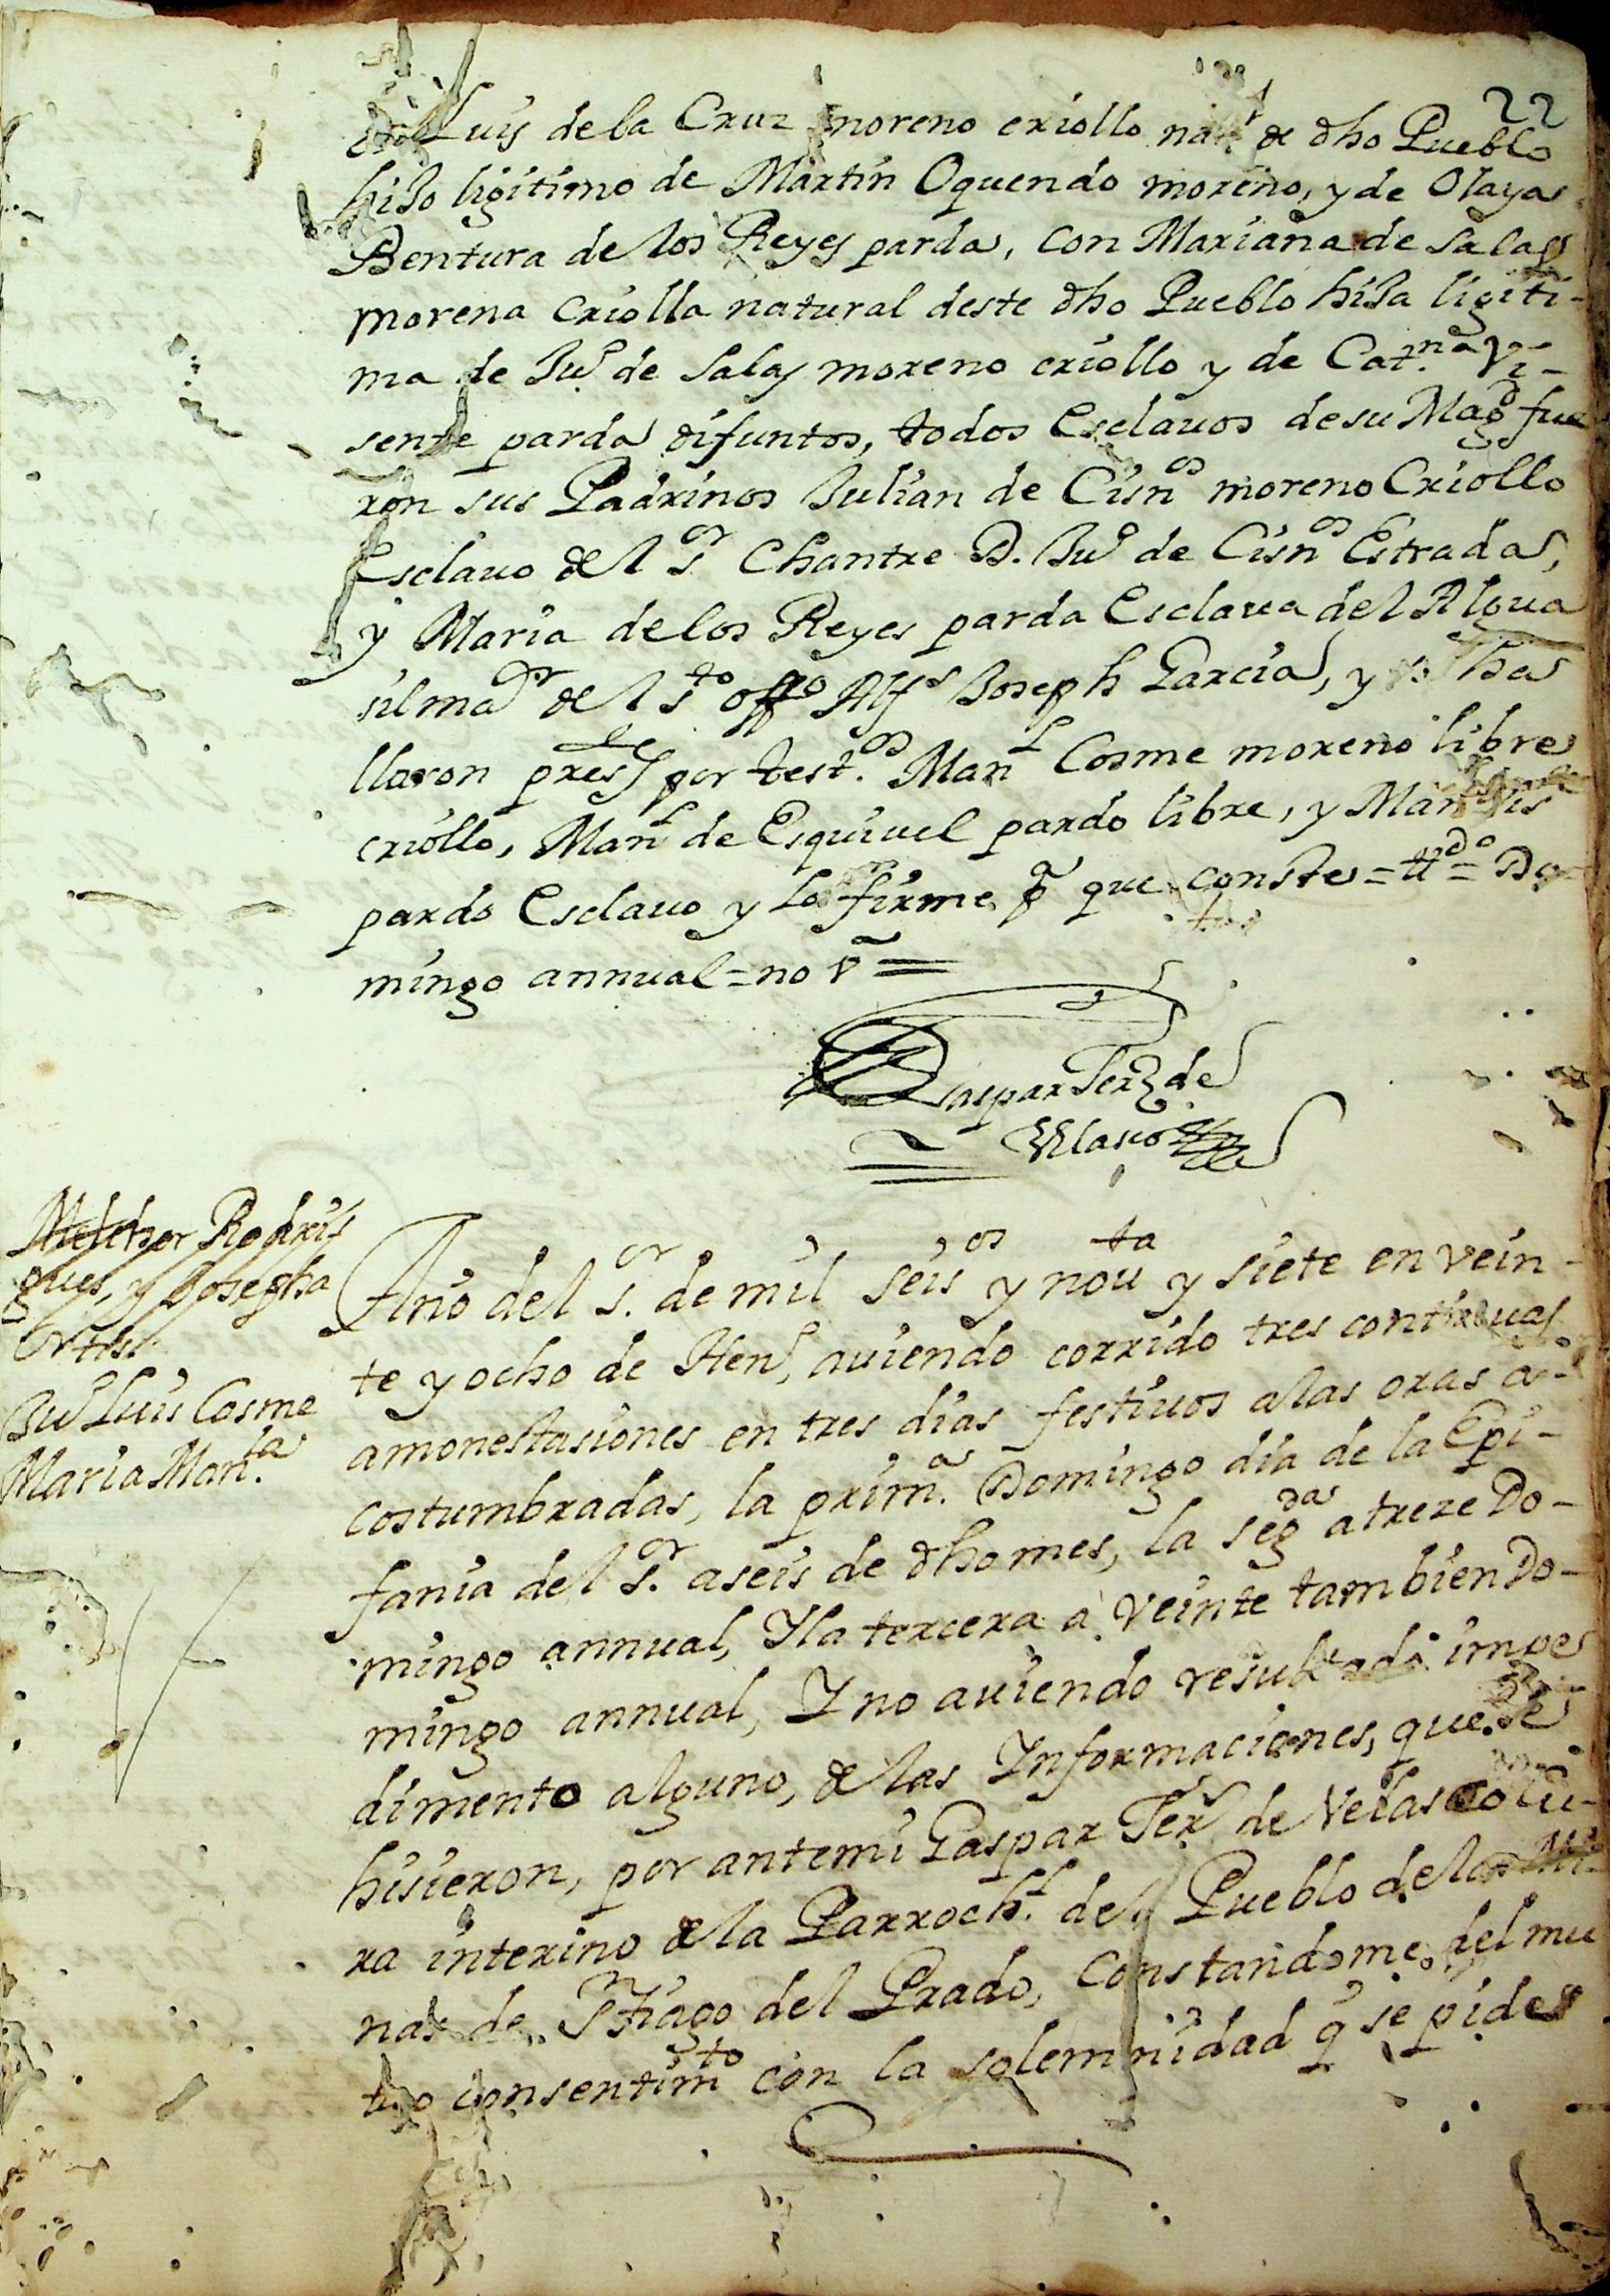 22
Luis de la Cruz moreno criollo natl de dho Pueblo
hiJo ligitimo de Martin Oquendo moreno, y de Olaya
Bentura de los Reyes parda, con Mariana de Salas
morena Criolla natural deste dho Pueblo hiJa ligiti-
ma de Juo de Salas moreno criollo y de Catna Vi-
sente parda difuntos, todos Esclauos de su Magd fue
ron sus Padrinos Julian de Cisnos moreno Criollo
Esclauo del sor Chantre D. Juo de Cisnos Estrada,
y Maria de los Reyes parda Esclaua del Algua
silmaor del sto offo Alfs Joseph Garcia, y Ha
llaron press por testos Manl Cosme moreno libre
criollo, Manl de Esquiuel pardo libre, y Manl
pardo Esclauo y lo firme pa que conste = ttdo = Do
mingo annual = no va =
Gaspar Ferz de
Velasco
Melchor Rodris
gues, y Josepha
Ortis
Juo Luis Cosme
Maria Manta
Año del sor de mil seisos y nouta y siete en vein-
te y ocho de Heno, auiendo corrido tres continuas
amonestasiones en tres dias festiuos alas oras a-
costumbradas, la prima Domingo dia de la Epi-
fania del sor a seis de dho mes, la segda a treze Do-
mingo annual, Y la tercera a veinte tambien Do-
mingo annual, Y no auiendo resultado impe
dimento alguno, de las Informaciones, que se
hisieron, por antemi Gaspar Ferz de Velasco Cu-
ra interino de la Parrochl del Pueblo de las Mi
nas de Stiago del Prado, Constandome del mu
tuo consentimto con la solemnidad q se pide